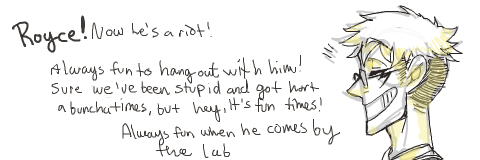 Royce! Now he's a riot!
Always fun to hang out with him!
Sure we've been stupid and got hurt
a buncha times, but hey, it's fun times!
Always fun when he comes by
the lab